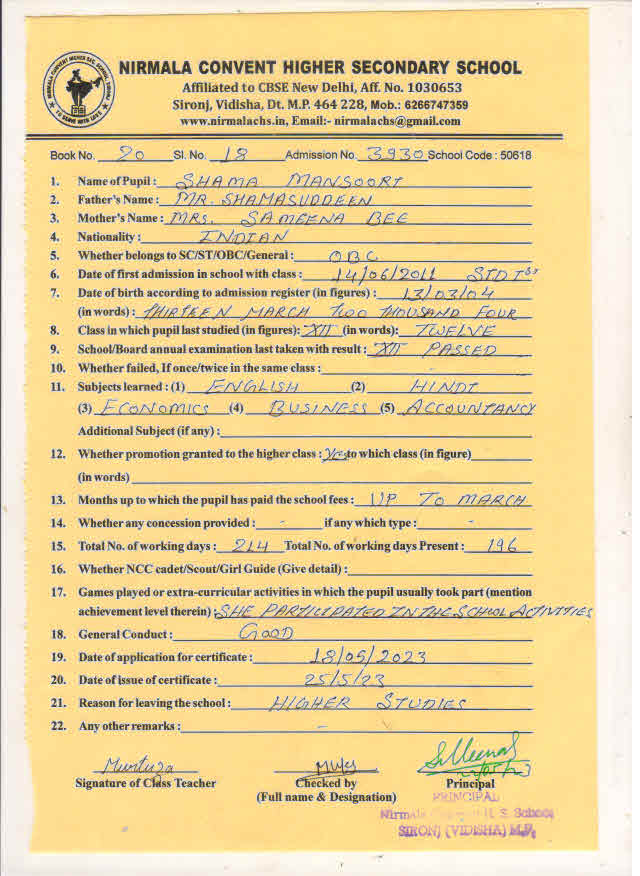 NIRMALA CONVENT HIGHER SECONDARY SCHOOL
Affiliated to CBSE New Delhi, Aff. No. 1030653
Sironj, Vidisha, Dt. M.P. 464 228, Mob.: 6266747359
www.nirmalachs.in, Email:- nirmalachs@gmail.com
Book No. 20 Sl. No. 18 Admission No. 3930 School Code : 50618
1. Name of Pupil : SHAMA MANSOORI
2. Father's Name : MR. SHAMASUDDEEN
3. Mother's Name : MRS. SAMEENA BEE
4. Nationality : INDIAN
5. Whether belongs to SC/ST/OBC/General : OBC
6. Date of first admission in school with class : 14/06/2011 STD Ist
7. Date of birth according to admission register (in figures) : 13/03/04
(in words) : THIRTEEN MARCH TWO THOUSAND FOUR
8. Class in which pupil last studied (in figures): XII (in words): TWELVE
9. School/Board annual examination last taken with result : XII PASSED
10. Whether failed, If once/twice in the same class : -
11. Subjects learned : (1) ENGLISH (2) HINDI
(3) ECONOMICS (4) BUSINESS (5) ACCOUNTANCY
Additional Subject (if any) :
12. Whether promotion granted to the higher class : Yes to which class (in figure)
(in words)
13. Months up to which the pupil has paid the school fees : UP TO MARCH
14. Whether any concession provided : - if any which type : -
15. Total No. of working days : 214 Total No. of working days Present : 196
16. Whether NCC cadet/Scout/Girl Guide (Give detail) :
17. Games played or extra-curricular activities in which the pupil usually took part (mention
achievement level therein) : SHE PARTICIPATED IN THE SCHOOL ACTIVITIES
18. General Conduct : GOOD
19. Date of application for certificate : 18/05/2023
20. Date of issue of certificate : 25/5/23
21. Reason for leaving the school : HIGHER STUDIES
22. Any other remarks : -
Signature of Class Teacher Checked by Principal
(Full name & Designation)
PRINCIPAL
Nirmala H. S. School
SIRONJ (VIDISHA) M.P.